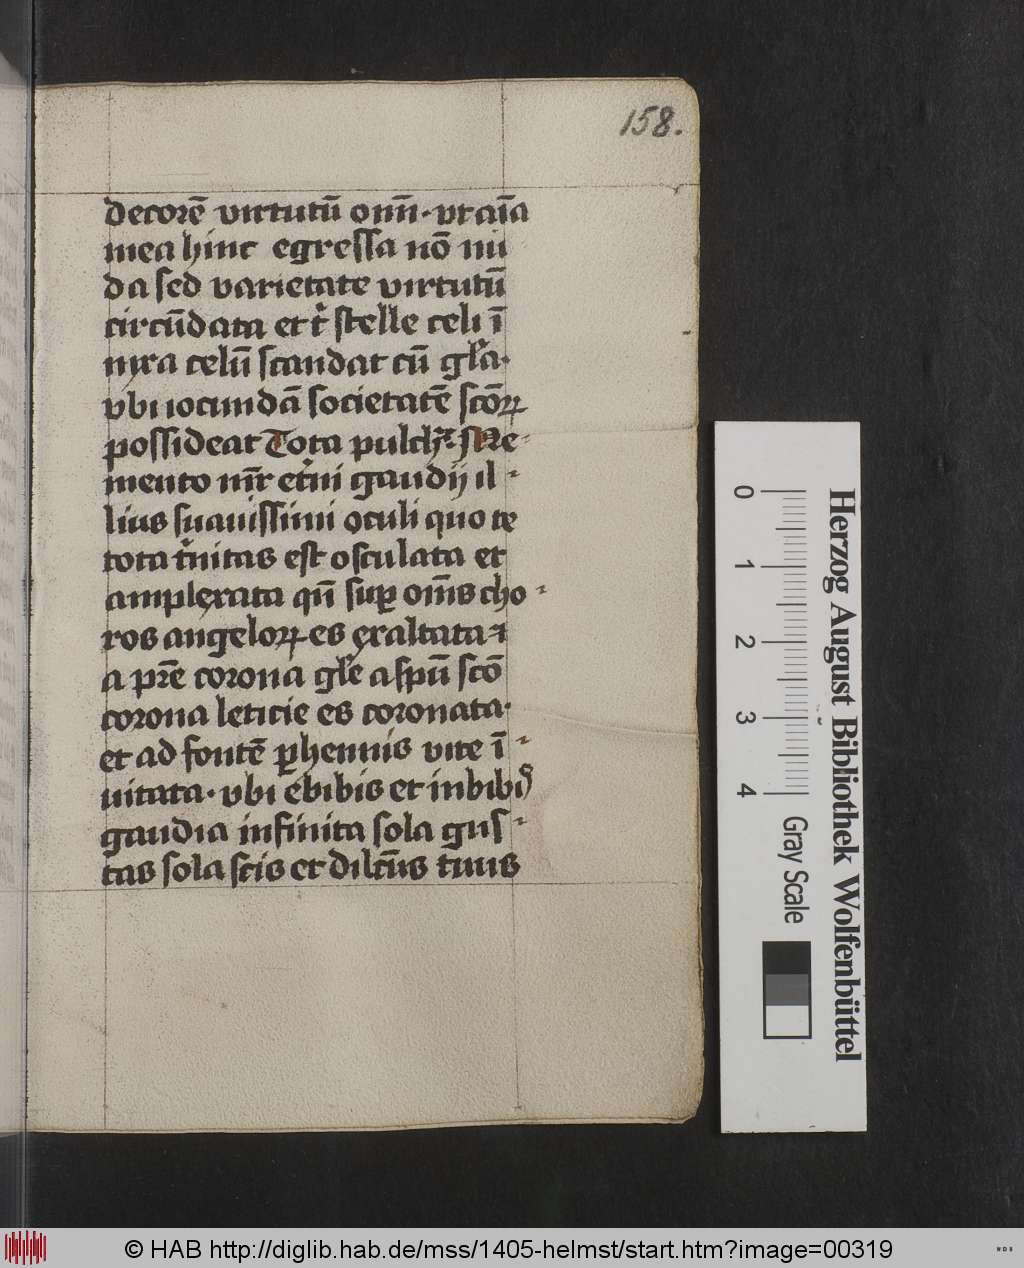 158.
decorē virtutū om̄. vt aīa
mea hinc egressa nō nu
da sed varietate virtutū
circūdata et t᷑ stelle celi ī
nyxa celū scandat cū gl̄a.
vbi iocundā societatē scōꝝ
possideat Tota pulch᷑. Me-
mento mr̄ et᷑ni gaudij il-
lius suauissimi oculi quo te
tota t᷑nitas est osculata et
amplexata qn̄ suꝑ om̄s cho-
ros angeloꝝ es exaltata ⁊
a pr̄e corona gl̄e a spū scō
corona leticie es coronata.
et ad fontē ꝑhennis vite ī-
uitata. vbi ebibis et inbibꝭ
gaudia infinita sola gus-
tas sola scis et dilc̄us tuus
Herzog August Bibliothek Wolfenbüttel
0 1 2 3 4
Gray Scale
© HAB http://diglib.hab.de/mss/1405-helmst/start.htm?image=00319